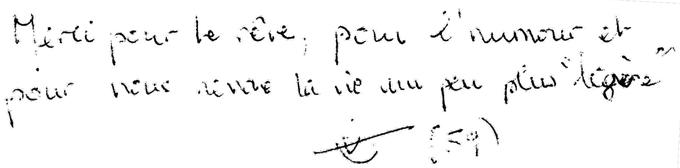 Merci pour le rêve, pour l'humour et
pour nous rendre la vie un peu plus "légère"
(59)